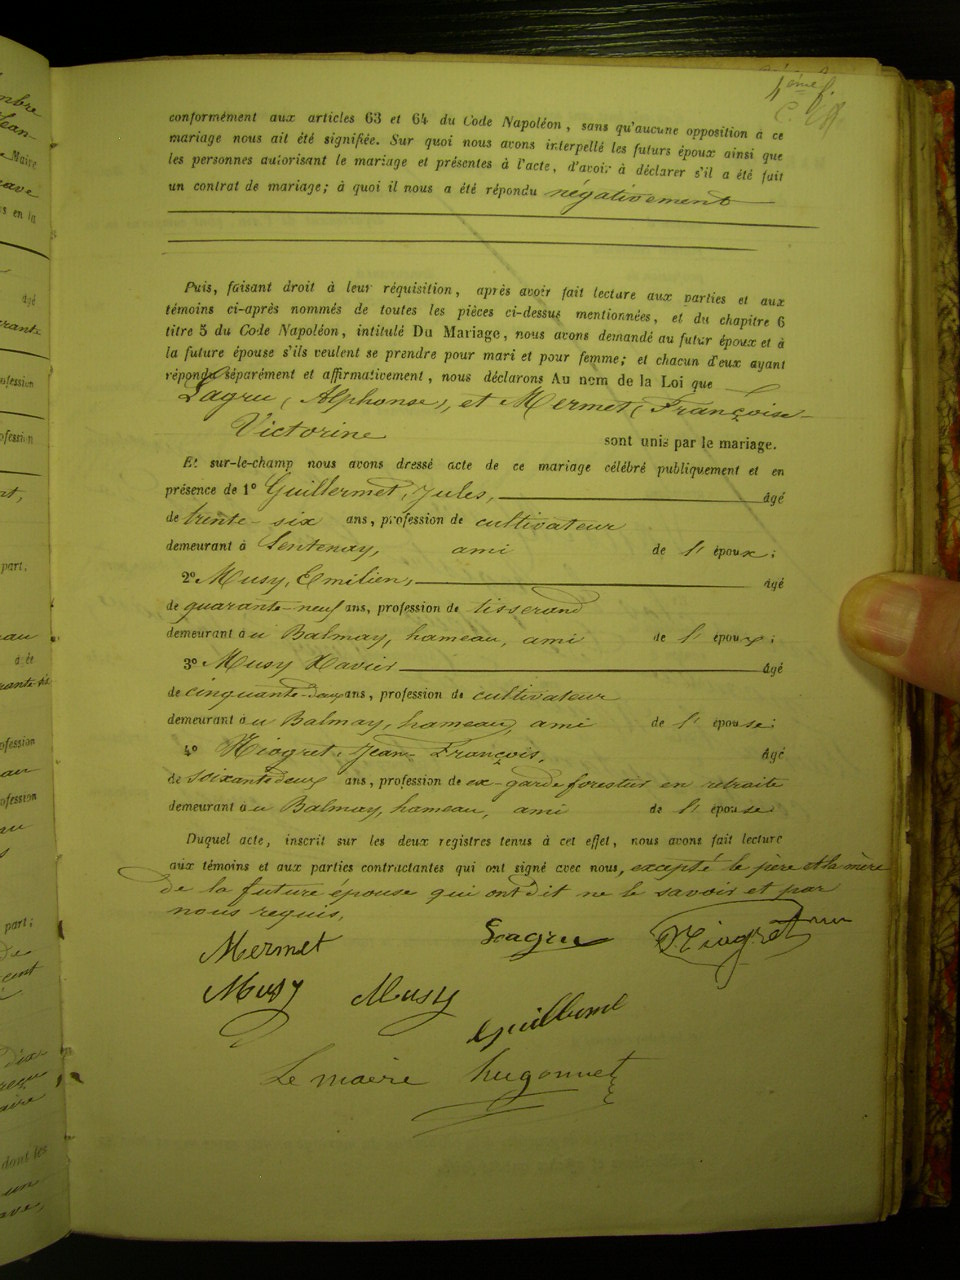 4ème f.
conformément aux articles 63 et 64 du Code Napoléon, sans qu'aucune opposition à ce
mariage nous ait été signifiée. Sur quoi nous avons interpellé les futurs époux ainsi que
les personnes autorisant le mariage et présentes à l'acte, d'avoir à déclarer s'il a été fait
un contrat de mariage; à quoi il nous a été répondu négativement
Puis, faisant droit à leur réquisition, après avoir fait lecture aux parties et aux
témoins ci-après nommés de toutes les pièces ci-dessus mentionnées, et du chapitre 6
titre 5 du Code Napoléon, intitulé Du Mariage, nous avons demandé au futur époux et à
la future épouse s'ils veulent se prendre pour mari et pour femme; et chacun d'eux ayant
répondu séparément et affirmativement, nous déclarons Au nom de la Loi que
(Alphonse), et Mermet (Françoise-
Victorine sont unis par le mariage.
Et sur-le-champ nous avons dressé acte de ce mariage célébré publiquement et en
présence de 1° Guillermet, Jules, âgé
de trente-six ans, profession de cultivateur
demeurant à ami de l'époux;
2° Musy, Emilien, âgé
de quarante-neuf ans, profession de tisserand
demeurant à u Balmay, hameau, ami de l'époux;
3° Musy Xavier âgé
de cinquante-deux ans, profession de cultivateur
demeurant à u Balmay, hameau, ami de l'épouse;
4° Jean-François, âgé
de soixante deux ans, profession de ex-garde forestier en retraite
demeurant à u Balmay, hameau, ami de l'épouse
Duquel acte, inscrit sur les deux registres tenus à cet effet, nous avons fait lecture
aux témoins et aux parties contractantes qui ont signé avec nous, excepté le père et la mère
de la future épouse qui ont dit ne le savoir et par
nous requis.
Mermet
Musy Musy
Le maire hugonnet